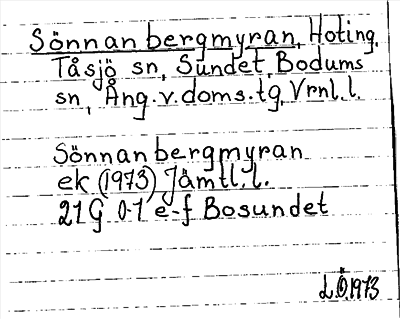 Sönnanbergmyran, Hoting,
Tåsjö sn, Sundet, Bodums
sn, Ång. v. doms. tg, Vrnl. l.
Sönnanbergmyran
ek (1973) Jämtl. l.
21G 0-1 e-f Bosundet
L.Ö.1973